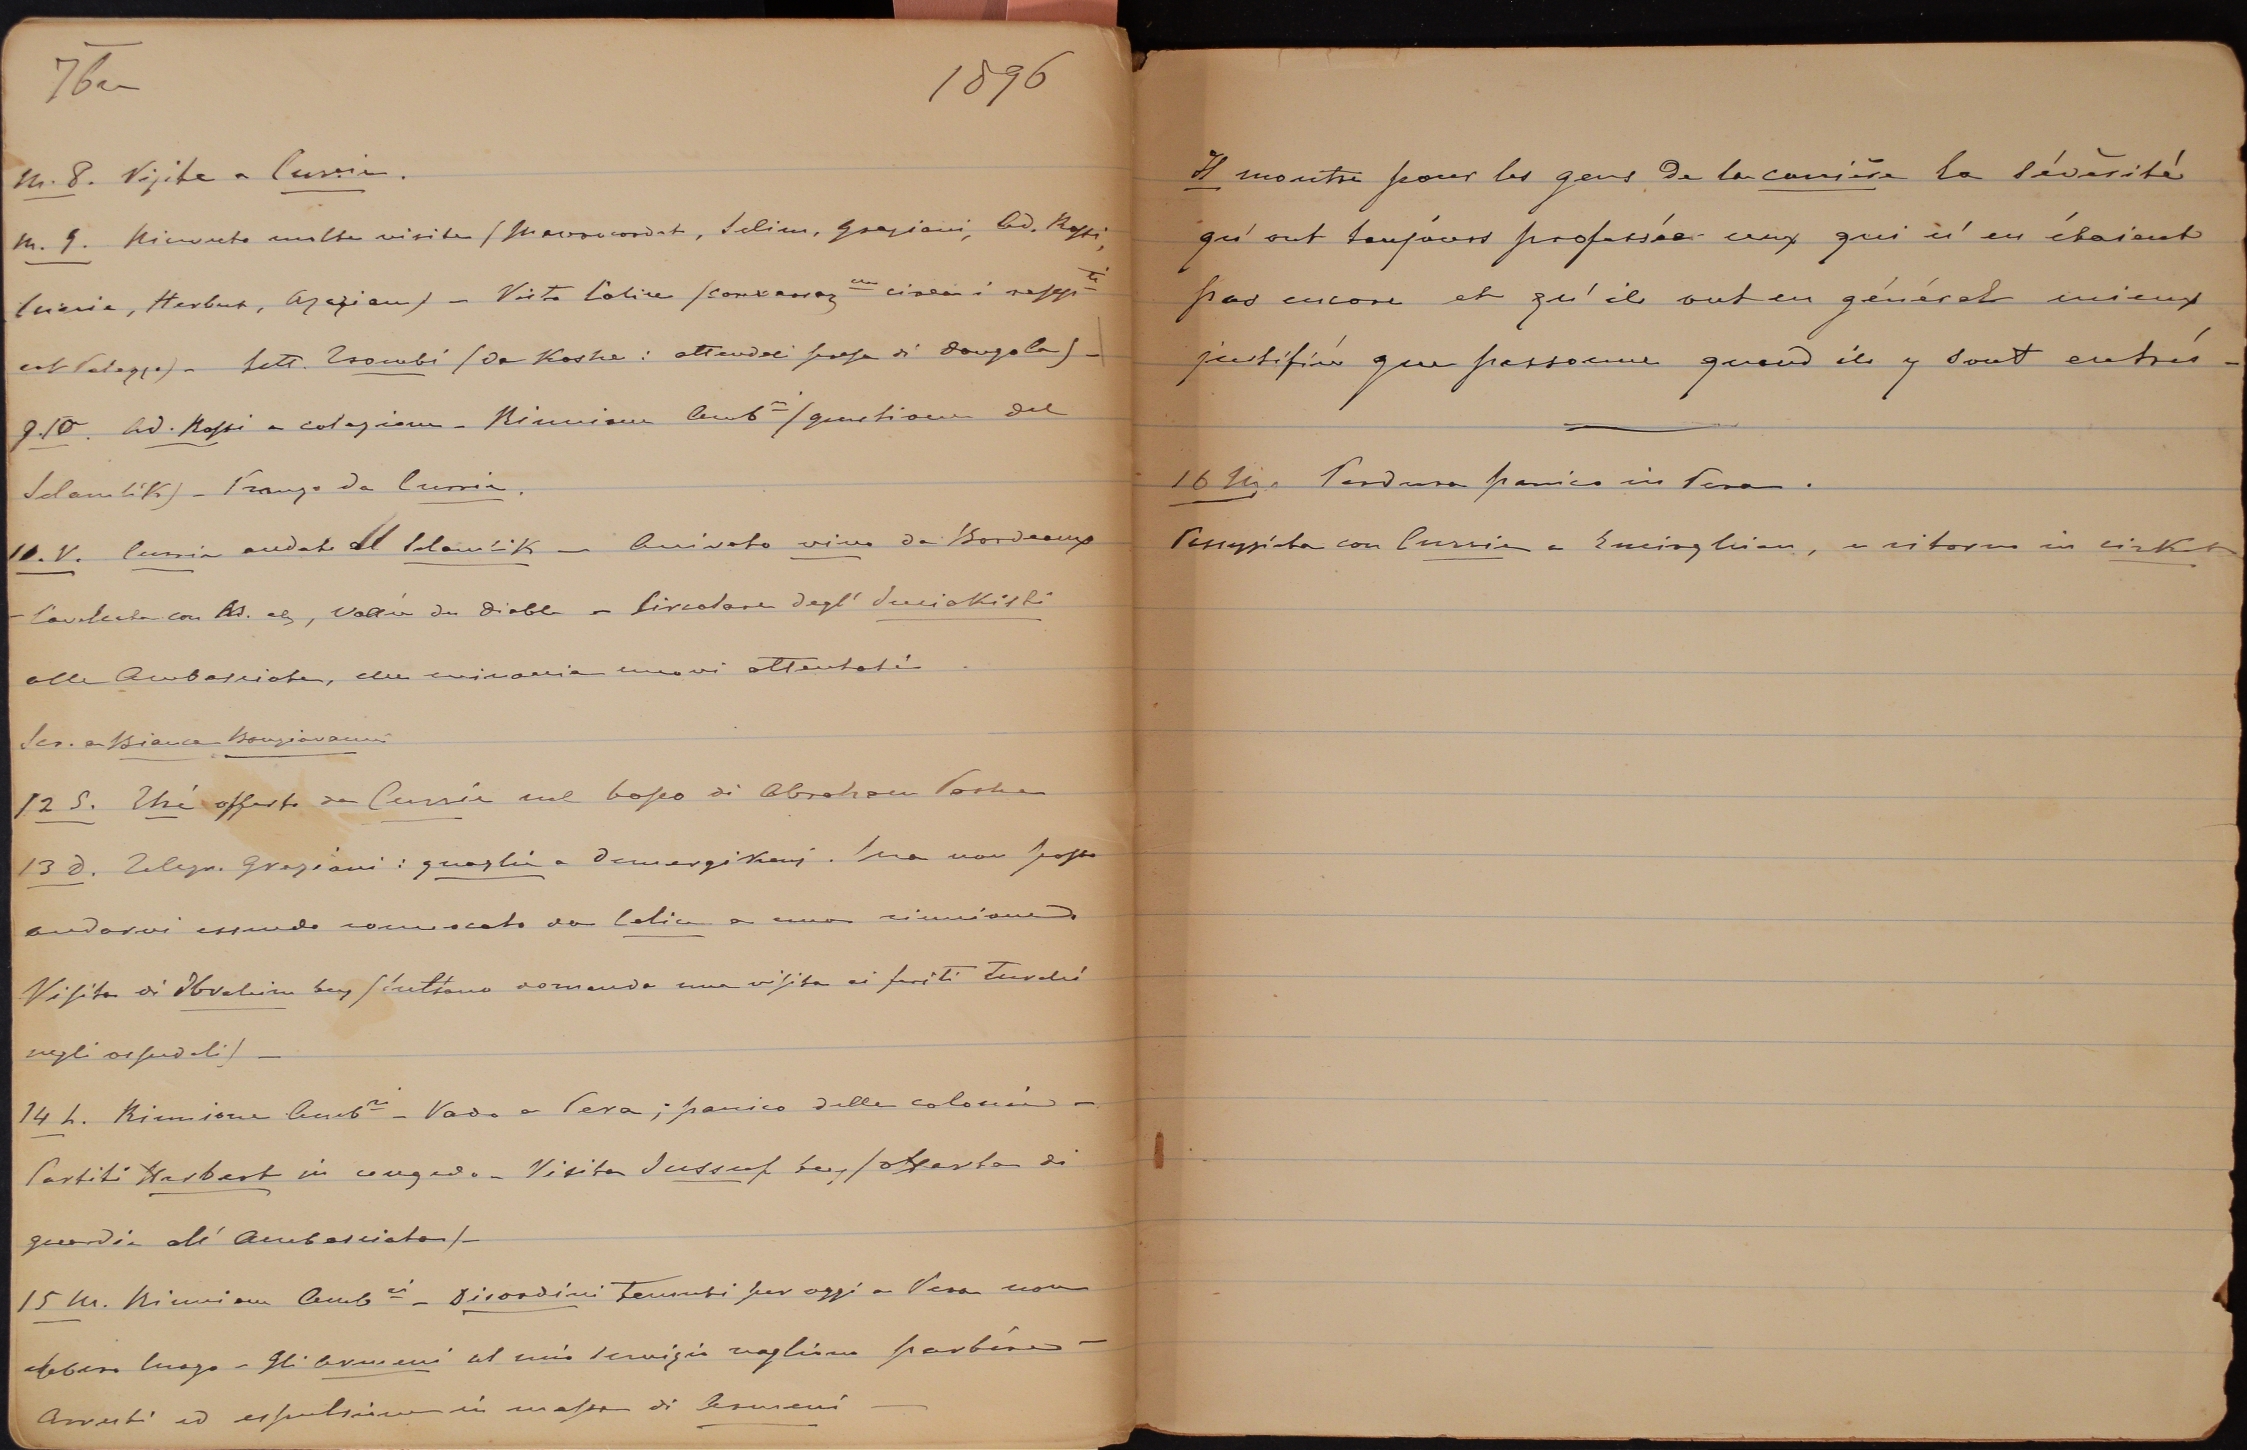 7bre 1896
M. 8. Visite a Currie.
M. 9. Ricevute molte visite (Mavrocordat, Selim, Graziani, Ad. Rossi,
Currie, Herbert, Azazian) - Visto Calice (conversaz ne circa i rapp ti
col Palazzo) - Lett. Trombi (da Koshe: attendesi presa di Dongola) -
g. 10. Ad. Rossi a colazione - Riunione Amb ri (questione del
Selamlik) - Pranzo da Currie.
11. V. Currie andato al Selamlik - Arrivato vino da Bordeaux
- Cavalcata con , Vallée du diable - Circolare degl'
alle Ambasciate, che minaccia nuovi attentati.
Scr. a Bianca Bongiovanni
12 S. Thé offerto da Currie nel bosco di Abraham Pasha
13 D. Telegr. Graziani: quaglie a . Ma non posso
andarvi essendo convocato da Calice a una riunione
Visita di Ibrahim bey (sultano domanda una visita ai feriti Turchi
negli ospedali) -
14 L. Riunione Amb ri - Vado a Pera; panico delle colonie -
Partiti Herbert in congedo - Visita Jussuf bey (offerta di
guardia all'Ambasciata) -
15 M. Riunione Amb ri - Disordini temuti per oggi a Pera non
ebbero luogo - Gli Armeni al mio servizio vogliono partire -
Arresti ed espulsione in massa di Armeni -
Il montre pour les gens de la carrière la sévérité
qu'ont toujours professée ceux qui n'en étaient
pas encore et qu'ils ont en général mieux
justifié que personne quand ils y sont entrés -
16 M. Perdura panico in Pera.
Passeggiata con Currie a Emirghian, e ritorno in